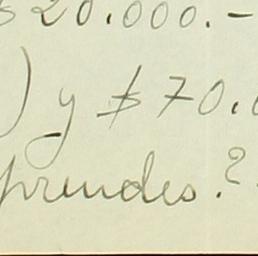 $ 20.000.-
) y $ 70.
prendes.?